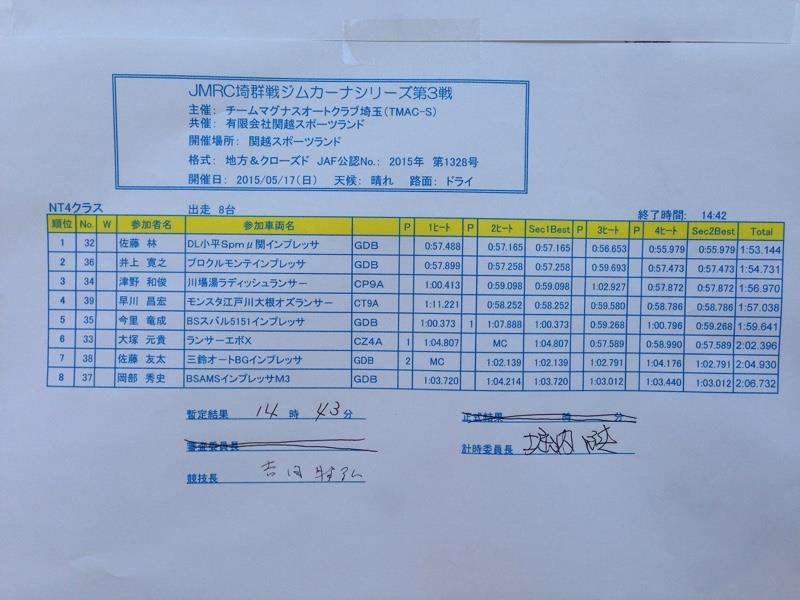 JMRC埼群戦ジムカーナシリーズ第3戦
主催: チームマグナスオートクラブ埼玉(TMAC-S)
共催: 有限会社関越スポーツランド
開催場所: 関越スポーツランド
格式: 地方&クローズド JAF公認No.: 2015年 第1328号
開催日: 2015/05/17(日) 天候: 晴れ 路面: ドライ
NT4クラス 出走 8台 終了時間: 14:42
順位 No. W 参加者名 参加車両名 P 1ヒート P 2ヒート Sec1Best P 3ヒート P 4ヒート Sec2Best Total
1 32 佐藤 林 DL小平Spmμ関インプレッサ GDB 0:57.488 0:57.165 0:57.165 0:56.653 0:55.979 0:55.979 1:53.144
2 36 井上 寛之 ブロクルモンテインプレッサ GDB 0:57.899 0:57.258 0:57.258 0:59.693 0:57.473 0:57.473 1:54.731
3 34 津野 和俊 川場湯ラディッシュランサー CP9A 1:00.413 0:59.098 0:59.098 1:02.927 0:57.872 0:57.872 1:56.970
4 39 早川 昌宏 モンスタ江戸川大根オズランサー CT9A 1:11.221 0:58.252 0:58.252 0:59.580 0:58.786 0:58.786 1:57.038
5 35 今里 竜成 BSスバル5151インプレッサ GDB 1:00.373 1 1:07.888 1:00.373 0:59.268 1:00.796 0:59.268 1:59.641
6 33 大塚 元貴 ランサーエボX CZ4A 1 1:04.807 MC 1:04.807 0:57.589 0:58.990 0:57.589 2:02.396
7 38 佐藤 友太 三鈴オートBGインプレッサ GDB 2 MC 1:02.139 1:02.139 1:02.791 1:04.176 1:02.791 2:04.930
8 37 岡部 秀史 BSAMSインプレッサM3 GDB 1:03.720 1:04.214 1:03.720 1:03.012 1:03.440 1:03.012 2:06.732
暫定結果 14 時 43 分 正式結果 時 分
審査委員長 計時委員長
競技長